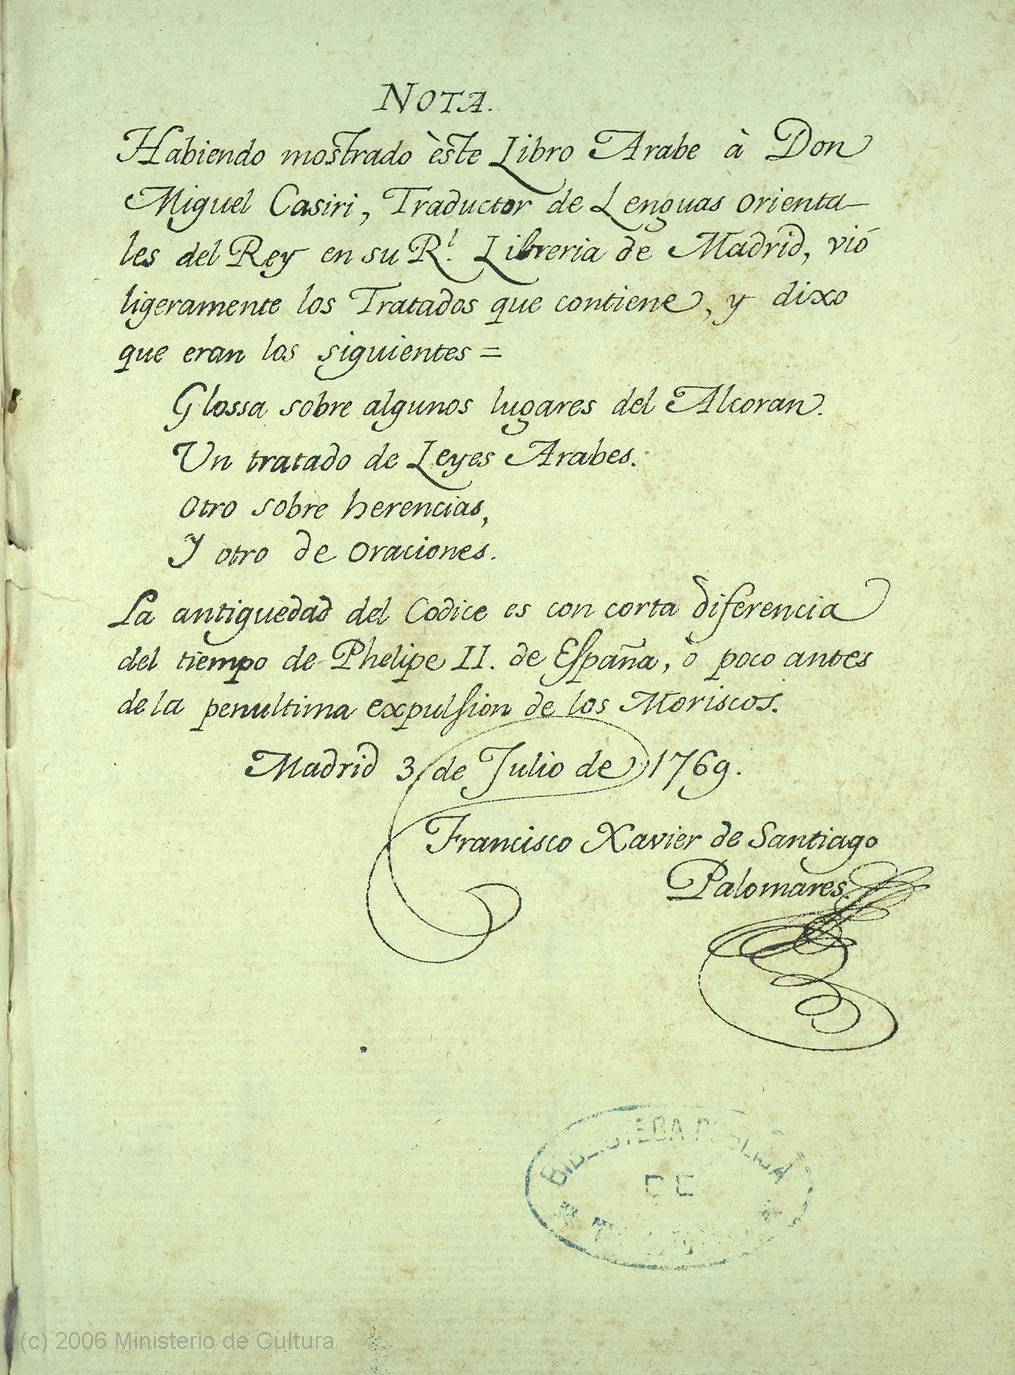 NOTA.
Habiendo mostrado èste Libro Arabe à Don
Miguel Casiri, Traductor de Lenguas orienta-
les del Rey en su R.l Libreria de Madrid, vió
ligeramente los Tratados que contiene, y dixo
que eran los siguientes =
Glossa sobre algunos lugares del Alcoran.
Un tratado de Leyes Arabes.
Otro sobre herencias,
Y otro de oraciones.
La antiguedad del Codice es con corta diferencia
del tiempo de Phelipe II. de España, ò poco antes
de la penultima expulsion de los Moriscos.
Madrid 3 de Julio de 1769.
Francisco Xavier de Santiago
Palomares.
BIBLIOTECA PUBLICA
DE
(c) 2006 Ministerio de Cultura